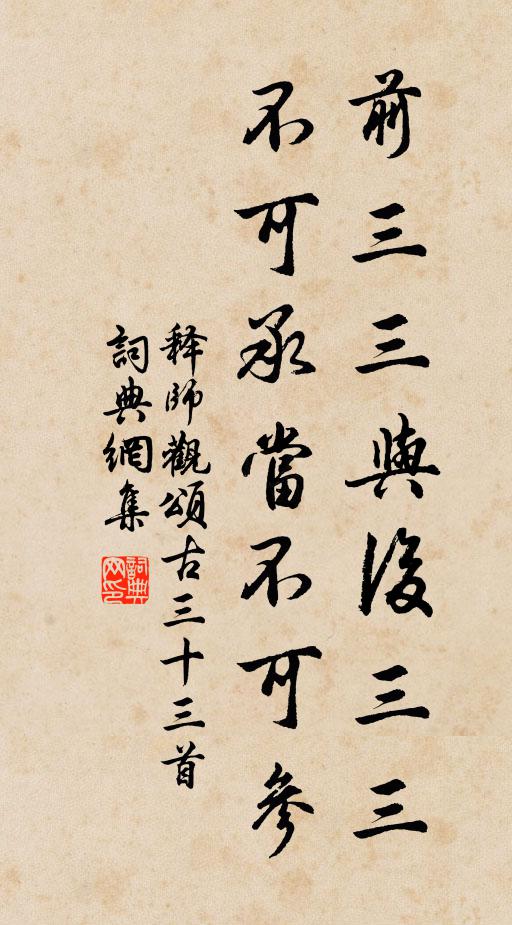 前三三與後三三
不可承當不可參
释師觀頌古三十三首
詞典網集
詞典网印